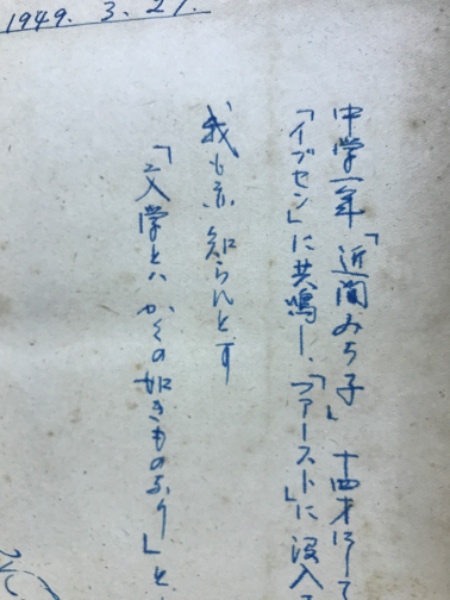 1949. 3. 27.
中学一年「近間みち子」十四才にして
「イプセン」に共鳴し、「ファースト」に没入
我も亦知らんとす
「文学とハかくの如きものなり」と